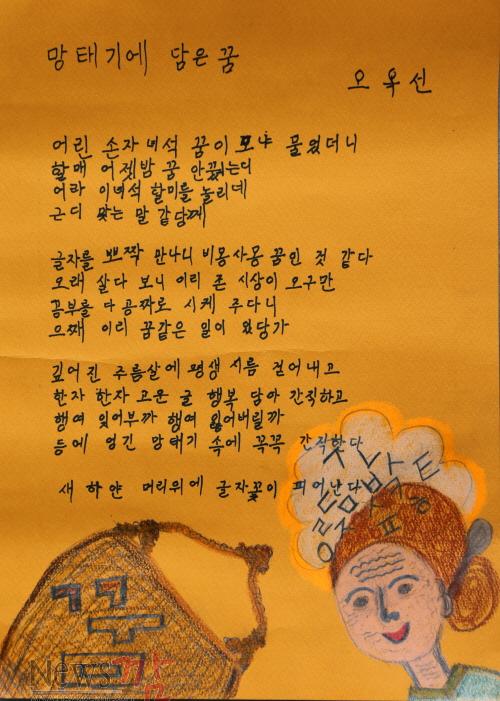 망태기에 담은 꿈
오옥선
어린 손자녀석 꿈이 모냐 물었더니
할매 어젯밤 꿈 안꿨는디
어라 이녀석 할미를 놀리네
근디 맞는 말 같당께
글자를 뽀짝 만나니 비몽사몽 꿈인 것 같다
오래 살다 보니 이리 존 시상이 오구만
공부를 다 공짜로 시케 주다니
으째 이리 꿈같은 일이 있당가
깊어진 주름살에 평생 시름 걷어내고
한자 한자 고운 글 행복 담아 간직하고
행여 잊어부까 행여 잃어버릴까
등에 엉긴 망태기 속에 꼭꼭 간직핫다
새 하얀 머리위에 글자꽃이 피어난다
꿈
News